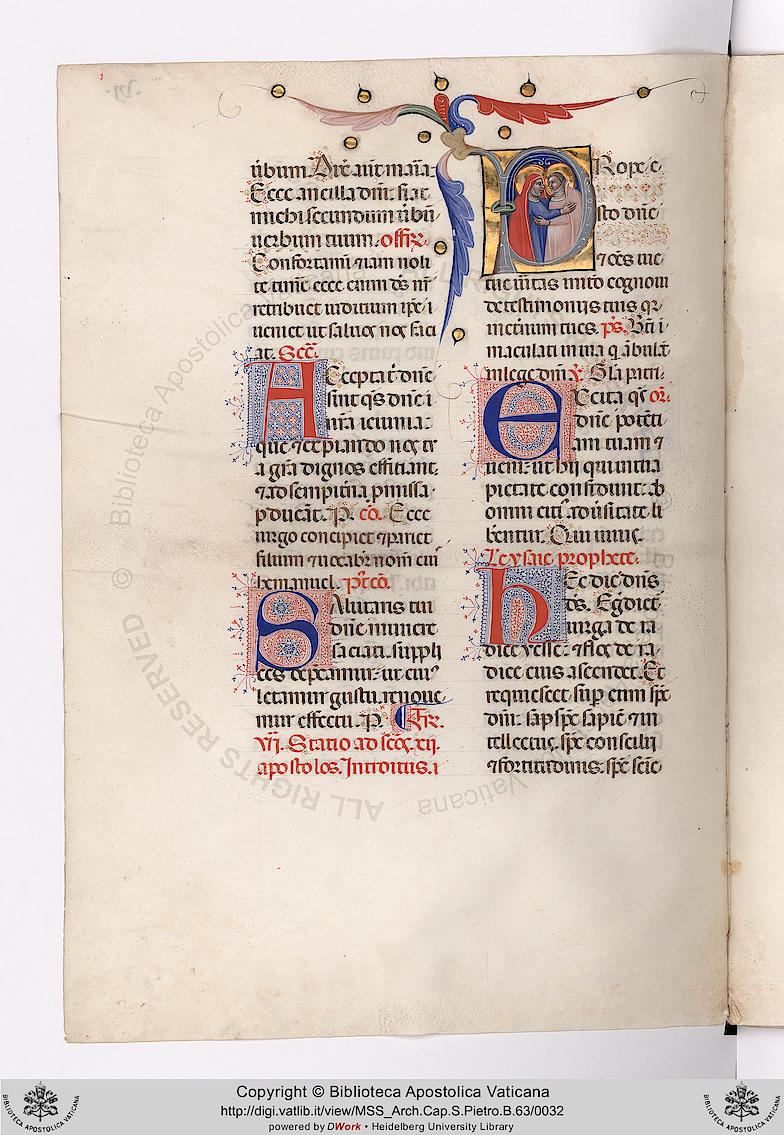 ũbum. Dix̃ aũt maria:
Ecce ancilla dñi: fiat
michi secundum ũbũ
uerbum tuum. offr̃.
Confortamĩ ⁊ iam noli
te timẽ: ecce enim dš nr̃
retribuet iuditium ip̃e i
ueniet ut saluos nos faci
at. Secr̃.
Accepta t̃ dñe
sint q̃s dñe i
nr̃a ieiunia:
que ⁊ expiando nos tr̃
a gr̃a dignos efficiant:
⁊ ad sempit̃na p̃missa
p̃ducãt. P. cõ. Ecce
uirgo concipiet ⁊ pariet
filium ⁊ uocabr̃ nom̃ eiꝰ
hemanuel. pꝰt cõ.
Salutaris tui
dñe munere
saciati. suppli
ces dep̃camur: ut cuiꝰ
letamur gustu. renoue
mur effectu. P.
VI. Statio ad sc̃os xii.
apostolos. Introitus. i
Rope e
sto dñe
⁊ oẽs uie
tue ũitas initio cognoui
de testimoniis tuis qr̃
inetñum tu es. pš. Bt̃i i
maculati in uia q̃ ãbulãt
in lege dñi. Gla patri.
Excita q̃s or̃.
dñe potẽti
am tuam ⁊
ueni: ut hij qui in tua
pietate confidunt: ab
omni citiꝰ adũsitate li
bentur. Qui uiuis.
Le ysaie prophete.
Hec dic̃ dñs
dš. Egdiet̃
uirga de ra
dice yesse: ⁊ flos de ra
dice eius ascendet. Et
requiescet sup̃ eum sp̃c
dñi: sp̃c sapiẽ ⁊ in
tellectus. sp̃c consilii
⁊ fortitudinis. sp̃c scĩe
© Biblioteca Apostolica Vaticana
ALL RIGHTS RESERVED
Copyright © Biblioteca Apostolica Vaticana
http://digi.vatlib.it/view/MSS_Arch.Cap.S.Pietro.B.63/0032
powered by DWork • Heidelberg University Library
BIBLIOTECA APOSTOLICA VATICANA
BIBLIOTECA APOSTOLICA VATICANA